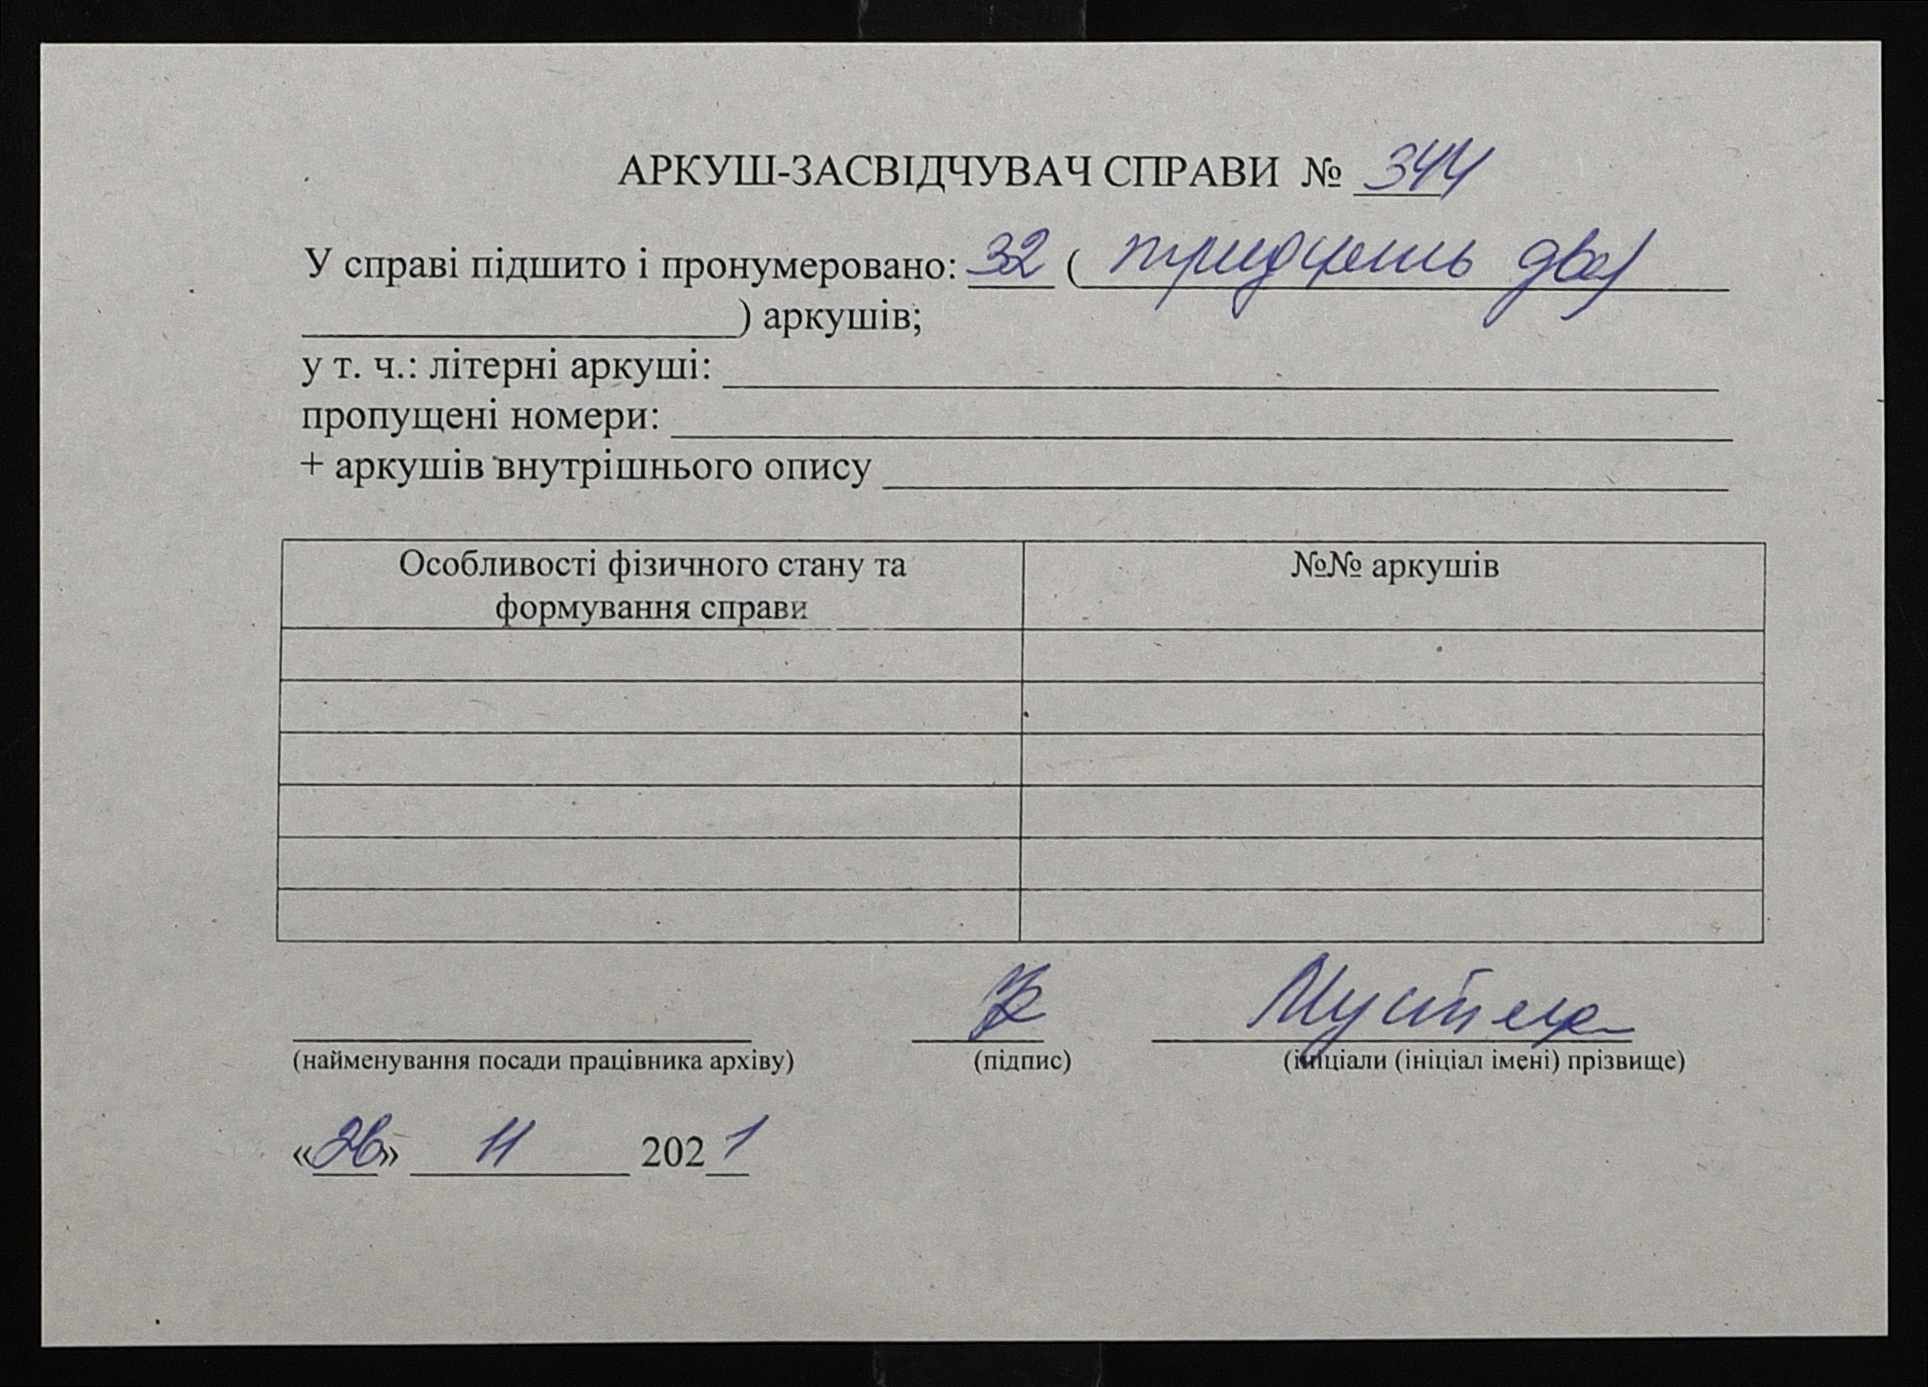 АРКУШ-ЗАСВІДЧУВАЧ СПРАВИ № 344
У справі підшито і пронумеровано: 32 ( тридцять два
) аркушів;
у т. ч.: літерні аркуші:
пропущені номери:
+ аркушів внутрішнього опису
Особливості фізичного стану та
формування справи
№№ аркушів
(найменування посади працівника архіву) (підпис) (ініціали (ініціал імені) прізвище)
«26» 11 2021